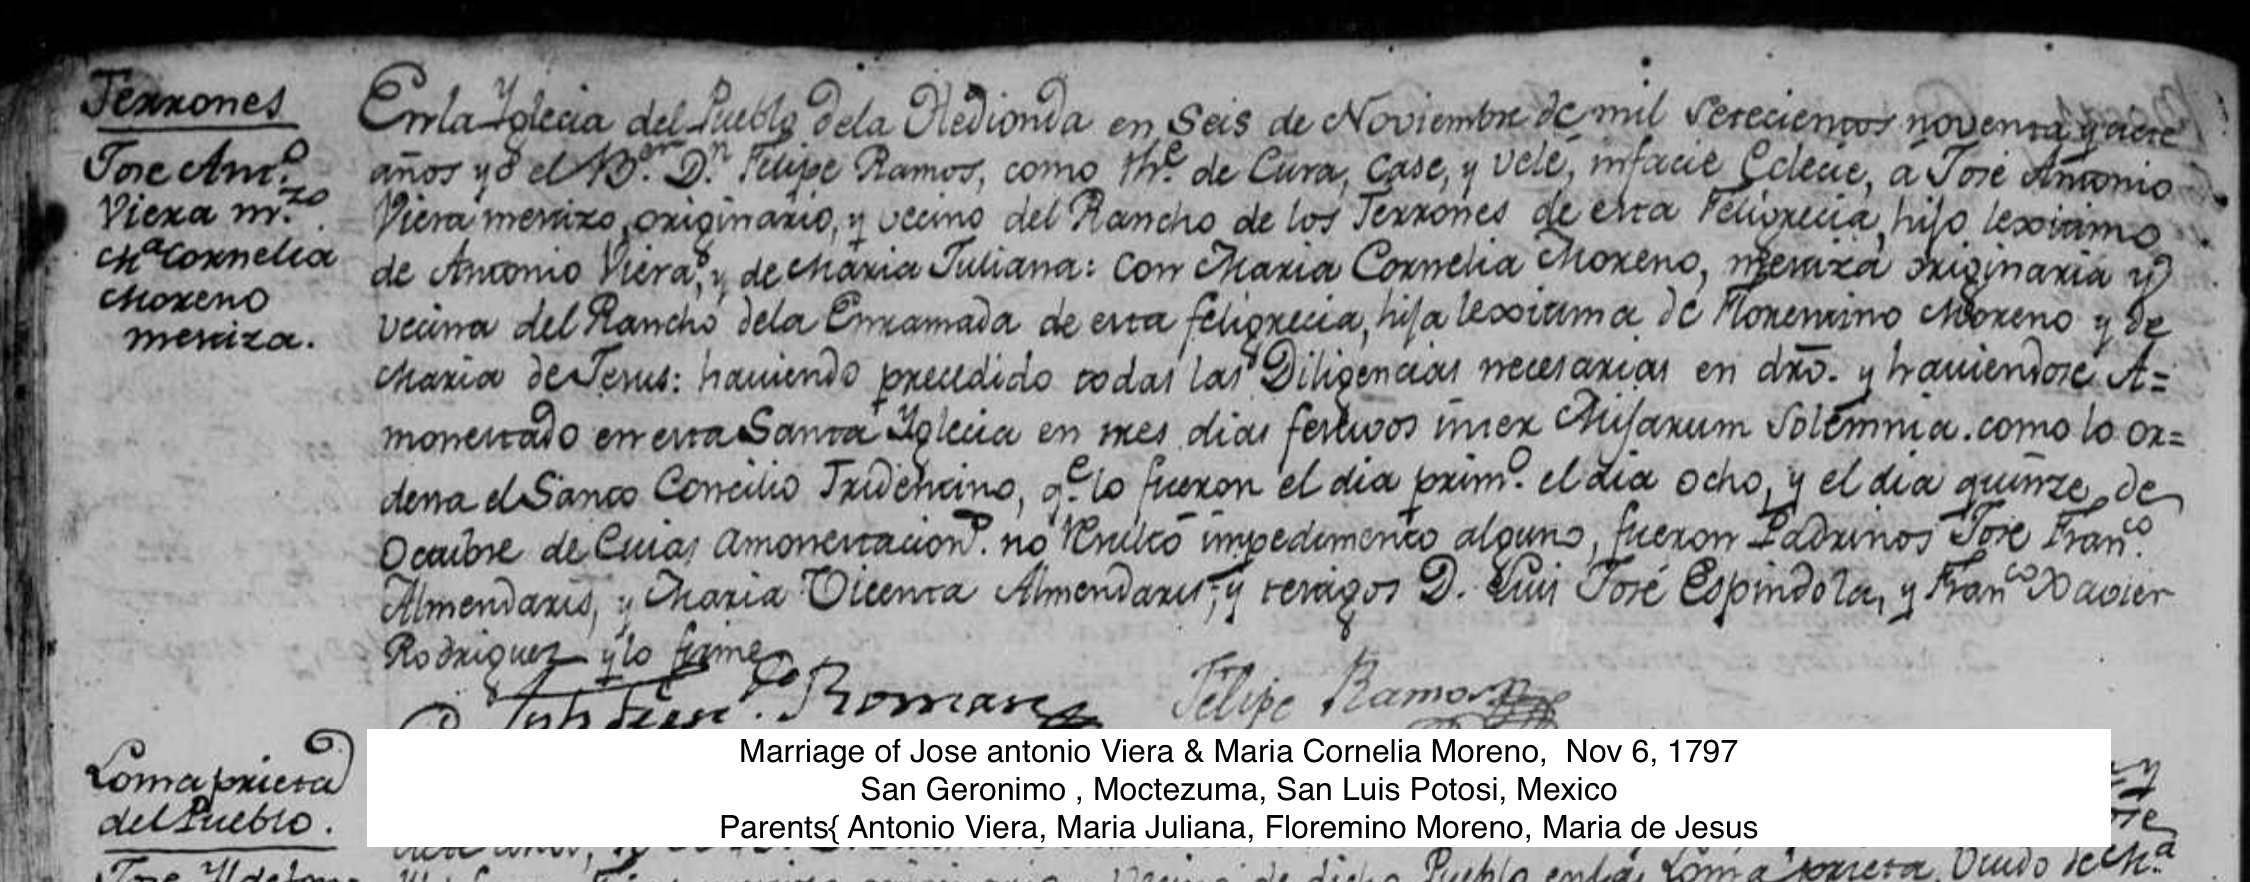 Terrones
Jose Ant.º
Viera m.zo
Ma Cornelia
Moreno
mestiza.
En la Yglecia del Pueblo dela Hedionda en Seis de Noviembre de mil setecientos noventa y siete
años yo el B.er D.n Felipe Ramos, como th.e de Cura, Case, y velé, infacie Eclecie, á José Antonio
Viera mestizo, originario, y vecino del Rancho de los Terrones de esta Feligrecia, hijo lexitimo
de Antonio Viera, y de Maria Juliana: con Maria Cornelia Moreno, mestiza originaria y
vecina del Rancho dela Enramada de esta feligrecia, hija lexitima de Florentino Moreno y de
Maria de Jesus: haviendo precedido todas las Diligencias necesarias en dro. y haviendose A=
monestado en esta Santa Yglecia en tres dias festivos inter Misarum Solemnia. como lo or=
dena el Santo Concilio Tridentino, q.e lo fueron el dia prim.º el dia ocho, y el dia quinze de
Octubre de Cuias amonestacion.s no resultó impedimento alguno, fueron Padrinos Jose Fran.co
Almendaris, y Maria Vicenta Almendaris, y testigos D. Luis José Espindola, y Fran.co Xavier
Rodriguez y lo firme
Felipe Ramos
Marriage of Jose antonio Viera & Maria Cornelia Moreno, Nov 6, 1797
San Geronimo , Moctezuma, San Luis Potosi, Mexico
Parents{ Antonio Viera, Maria Juliana, Floremino Moreno, Maria de Jesus
Loma prieta
del Pueblo.